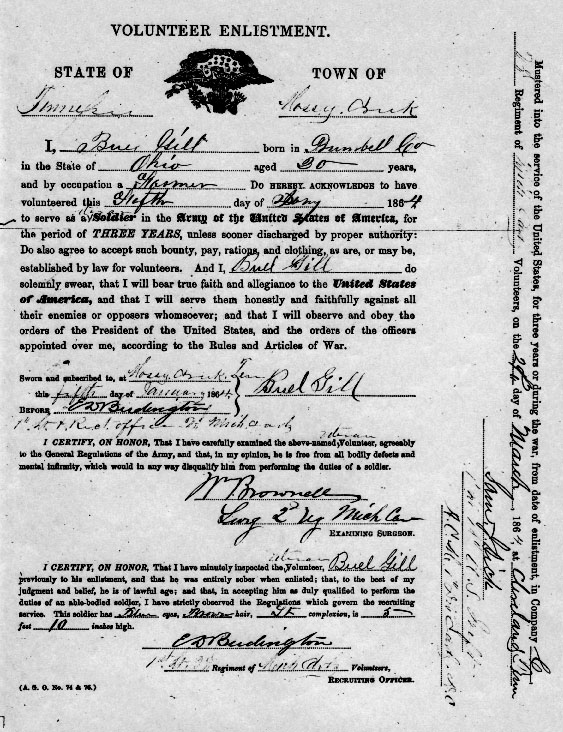 VOLUNTEER ENLISTMENT.
STATE OF TOWN OF
Tennessee Mossy Creek
I, Buel Gill born in Co
in the State of Ohio aged 30 years,
and by occupation a Farmer Do HEREBY ACKNOWLEDGE to have
volunteered this day of 1864
to serve as a Soldier in the Army of the United States of America, for
the period of THREE YEARS, unless sooner discharged by proper authority:
Do also agree to accept such bounty, pay, rations, and clothing, as are, or may be,
established by law for volunteers. And I, Buel Gill do
solemnly swear, that I will bear true faith and allegiance to the United States
of America, and that I will serve them honestly and faithfully against all
their enemies or opposers whomsoever; and that I will observe and obey the
orders of the President of the United States, and the orders of the officers
appointed over me, according to the Rules and Articles of War.
Sworn and subscribed to, at Mossy Creek Ten
this day of January 1864
Buel Gill
BEFORE C D Burdington
1st Lt & Rect. officer 2d Mich Cav
veteran
I CERTIFY, ON HONOR, That I have carefully examined the above-named Volunteer, agreeably
to the General Regulations of the Army, and that, in my opinion, he is free from all bodily defects and
mental infirmity, which would in any way disqualify him from performing the duties of a soldier.
Wm Brownell
Surg 2d Mich Cav
EXAMINING SURGEON.
veteran
I CERTIFY, ON HONOR, That I have minutely inspected the Volunteer, Buel Gill
previously to his enlistment, and that he was entirely sober when enlisted; that, to the best of my
judgment and belief, he is of lawful age; and that, in accepting him as duly qualified to perform the
duties of an able-bodied soldier, I have strictly observed the Regulations which govern the recruiting
service. This soldier has Blue eyes, Brown hair, Lt complexion, is 5
feet 10 inches high.
C D Burdington
1st Lt Regiment of Volunteers,
RECRUITING OFFICER.
(A. G. O. No. 74 & 76.)
Mustered into the service of the United States, for three years or during the war, from date of enlistment, in Company
Regiment of Volunteers, on the day of March, 1864, at Cleveland Tenn